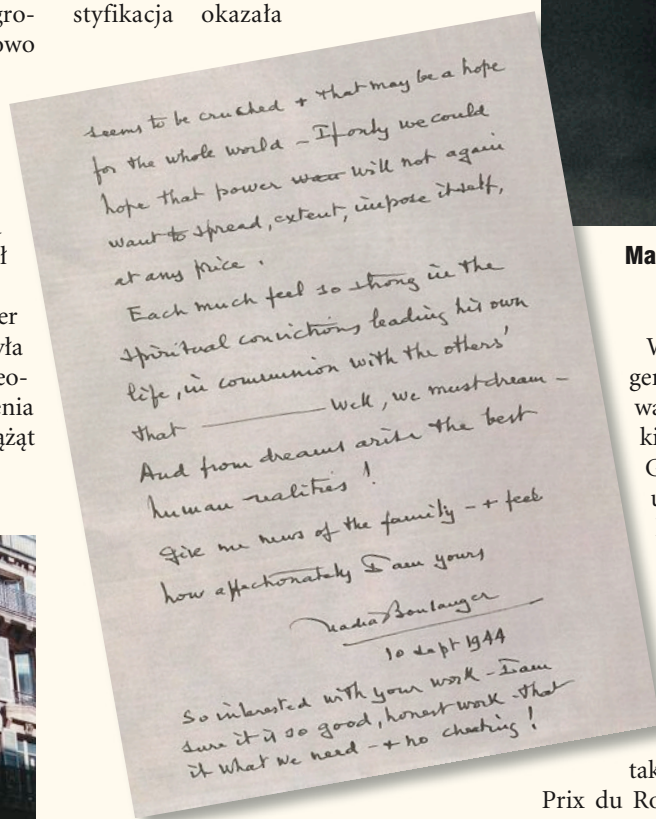 gro-
owo
ł
er
yła
eo-
enia
ążąt
styfikacja okazała
seems to be crushed + that may be a hope
for the whole world – If only we could
hope that power will not again
want to spread, extent, impose itself,
at any price.
Each much feel so strong in the
spiritual convictions leading his own
life, in communion with the others'
that ——— Well, we must dream –
And from dreams arise the best
human realities!
Give me news of the family – + feel
how affectionately I am yours
Nadia Boulanger
10 Sept 1944
So interested with your work – I am
sure it is so good, honest work – that
it what we need – + no cheating!
Ma
W
ger
wa
ki
u
tak
Prix du Ro